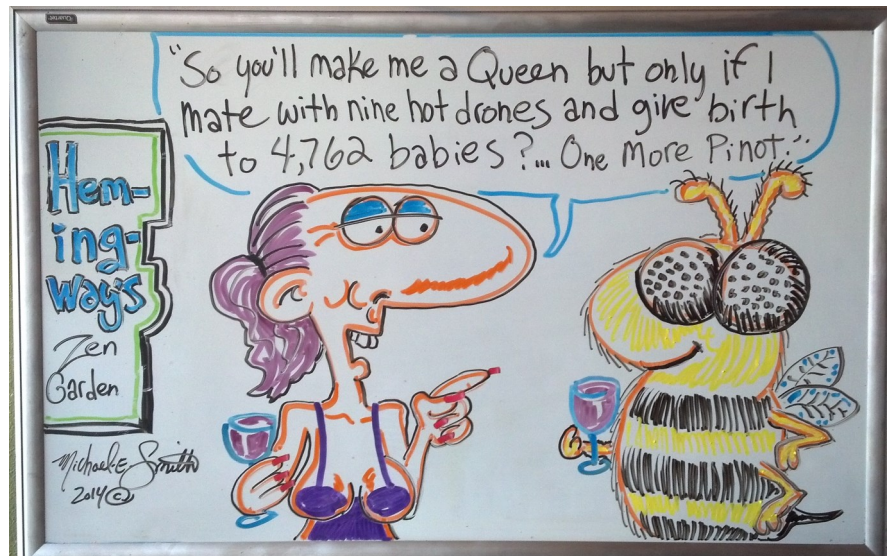 "So you'll make me a Queen but only if I
mate with nine hot drones and give birth
to 4,762 babies?... One More Pinot."
Hem-
ing-
way's
Zen
Garden
Michael E. Smith
2014 ©